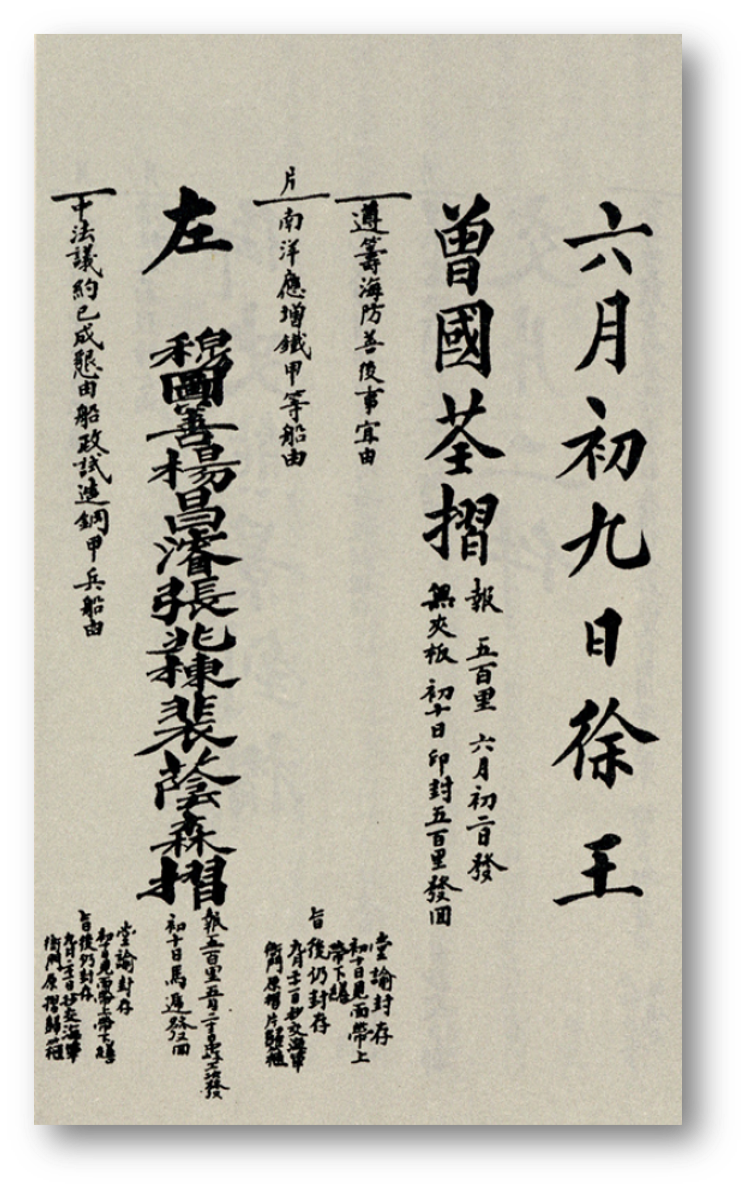 六月初九日徐王
曾國荃摺
報 五百里 六月初二日發
無夾板 初十日印封五百里發回
遵籌海防善後事宜由
堂諭封存
初十日見面帶上
帶下繕
旨後仍封存
九月二十一日抄交海軍
衙門原摺片歸箍
片
南洋應增鐵甲等船由
左 穆圖善楊昌濬張兆棟裴蔭森摺
報五百里五月二十
初十日馬遞發回
中法議約已成懇由船政試造鋼甲兵船由
堂諭封存
初十日見面帶上帶下繕
旨後仍封存
九月二十一日抄交海軍
衙門原摺歸箍